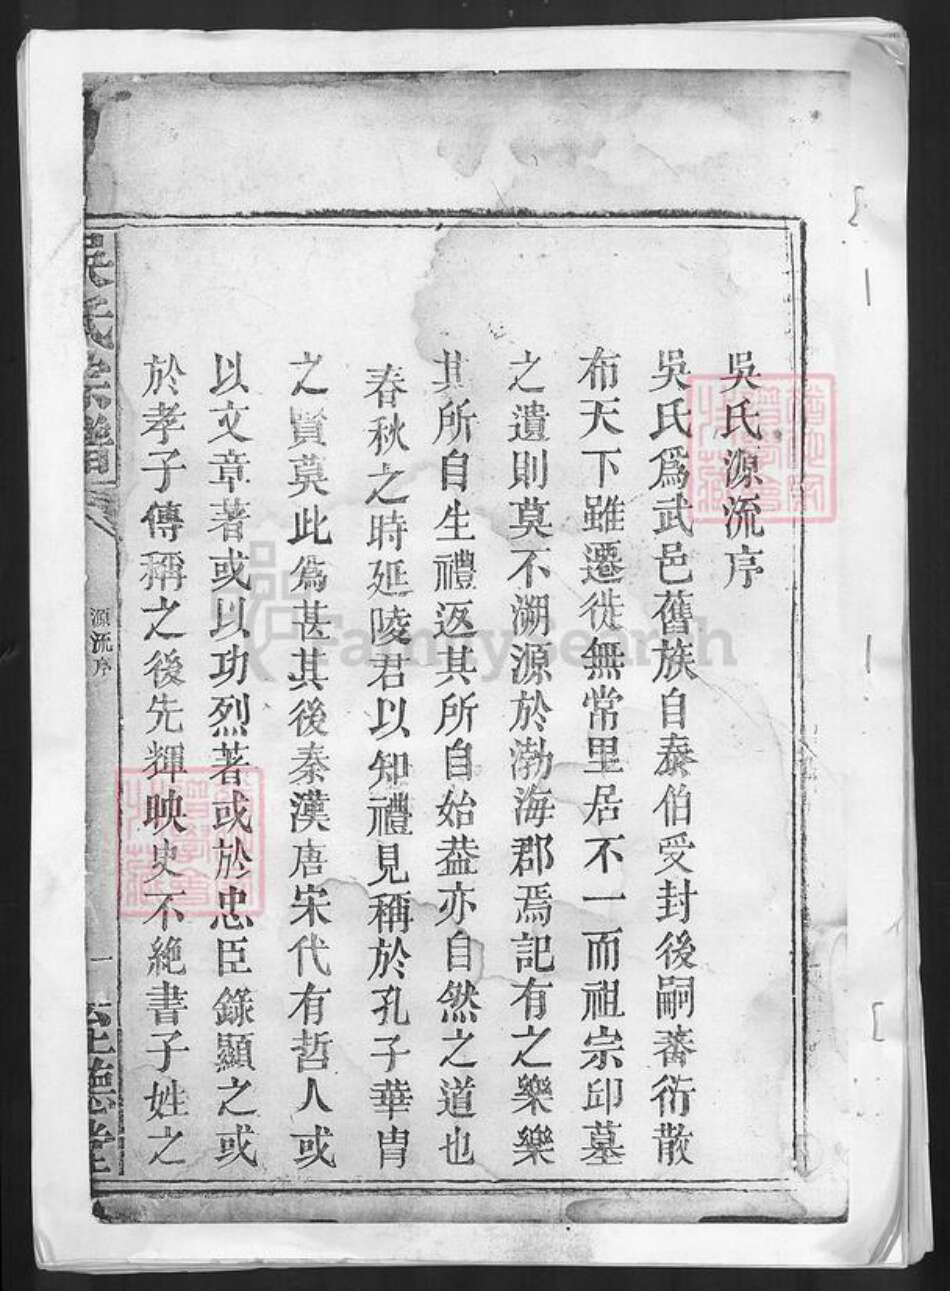 吳氏源流序
吳氏爲武邑舊族自泰伯受封後嗣蕃衍散
布天下雖遷徙無常里居不一而祖宗邱墓
之遺則莫不溯源於渤海郡焉記有之樂樂
其所自生禮返其所自始葢亦自然之道也
春秋之時延陵君以知禮見稱於孔子華冑
之賢莫此爲甚其後秦漢唐宋代有哲人或
以文章著或以功烈著或於忠臣錄顯之或
於孝子傳稱之後先輝映史不絶書子姓之
吳氏宗譜
源流序
一
至德堂
FamilySearch